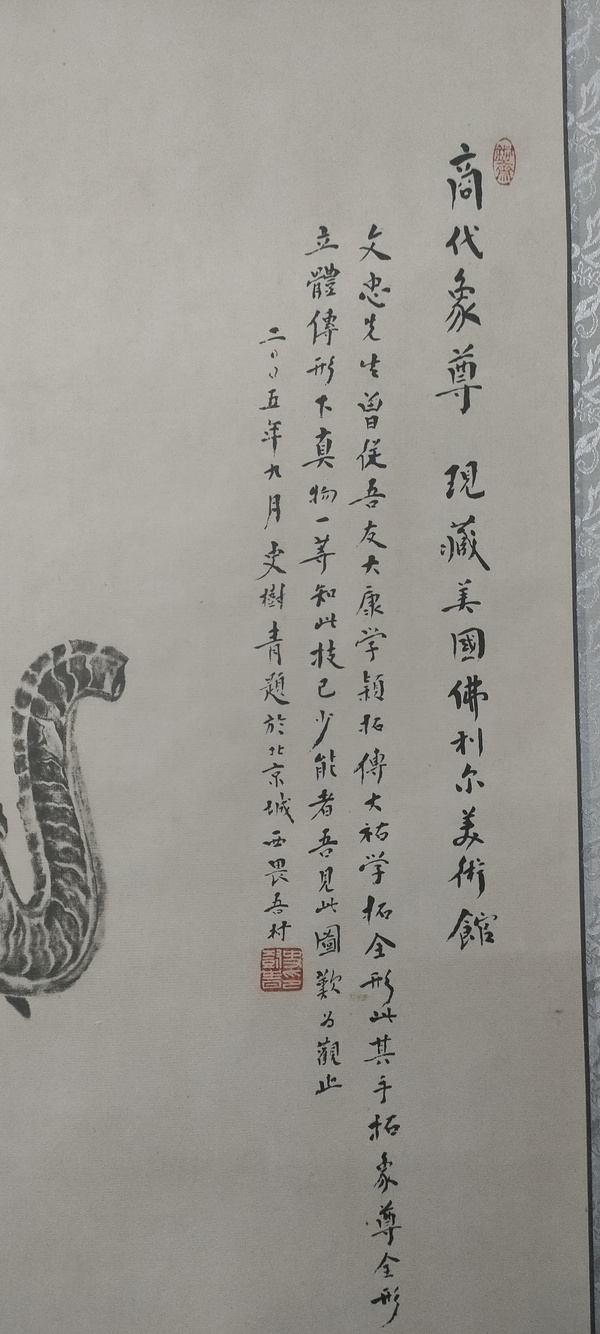 商代象尊 現藏美國佛利尔美術館
文忠先生曾從吾友大康学穎拓傅大祐学拓全形此其手拓象尊全形
立體傳形下真物一等知此技已少能者吾見此圖歎為觀止
二〇〇五年九月史樹青題於北京城西畏吾村